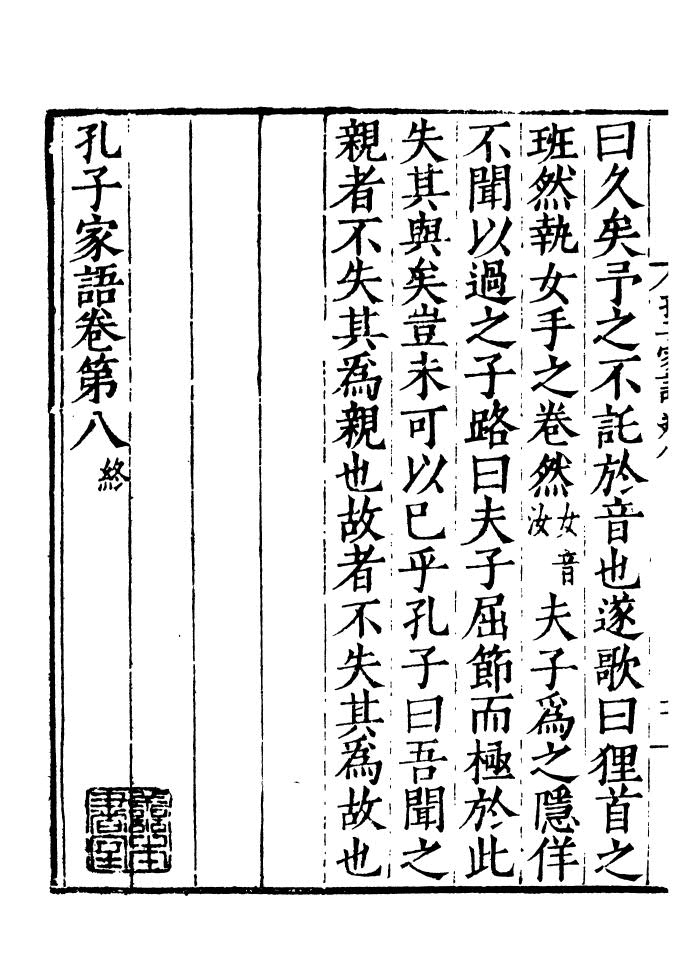 曰久矣予之不託於音也遂歌曰狸首之
班然執女手之卷然女音汝夫子為之隱佯
不聞以過之子路曰夫子屈節而極於此
失其與矣豈未可以已乎孔子曰吾聞之
親者不失其為親也故者不失其為故也
孔子家語卷第八終